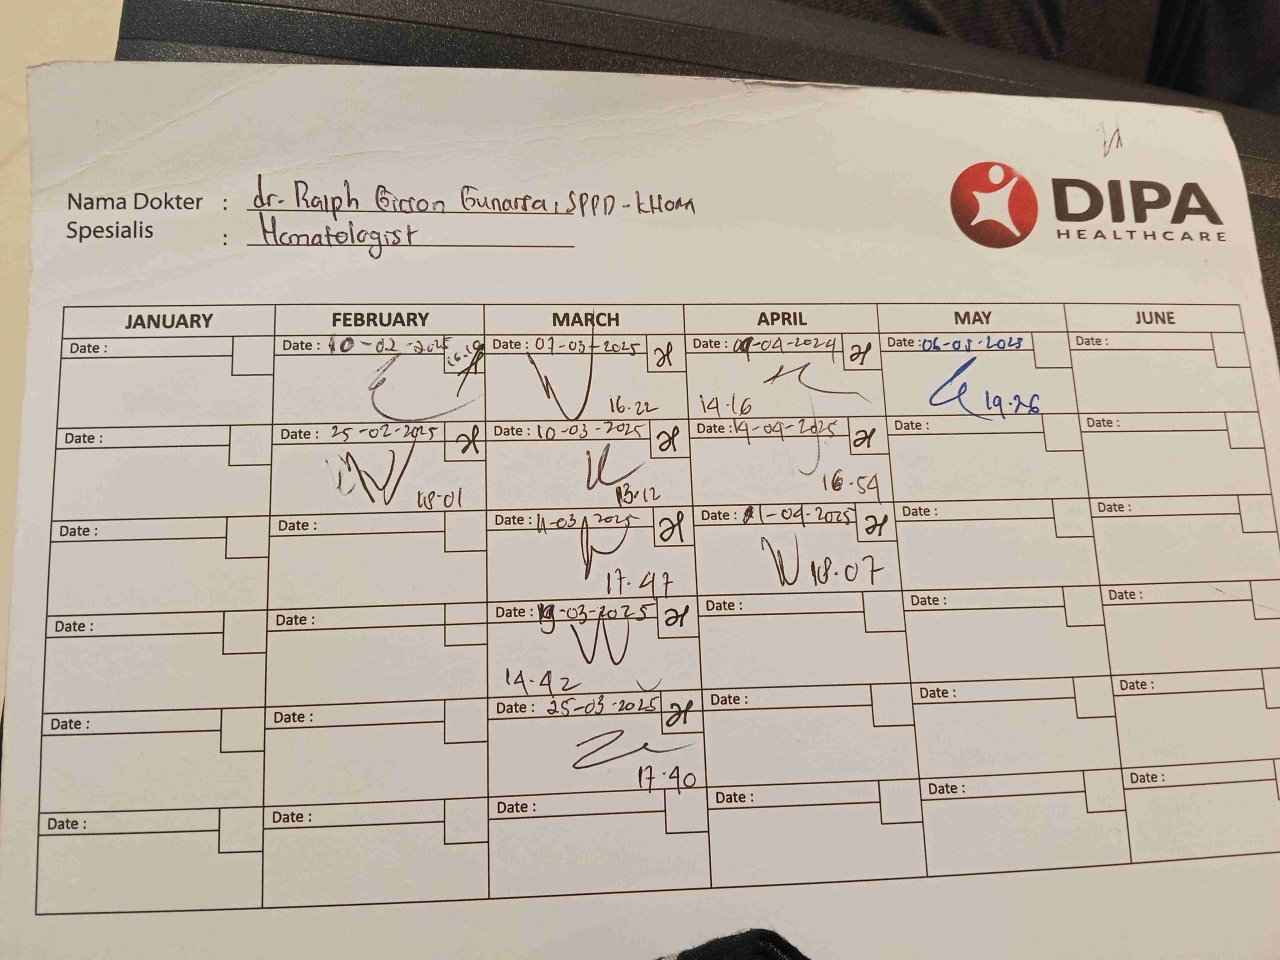 DIPA
HEALTHCARE
Nama Dokter : dr. Ralph Girson Gunarsa, SPPD-KHOM
Spesialis : Hematologist
JANUARY FEBRUARY MARCH APRIL MAY JUNE
Date : Date : 10-02-2025 Date : 07-03-2025 Date : -04-2024 Date : 06-05-2025 Date :
16.22 14.16 19.26
Date : Date : 25-02-2025 Date : 10-03-2025 Date : 14-04-2025 Date : Date :
18.01 13.12 16.54
Date : Date : Date : 11-03-2025 Date : 21-04-2025 Date : Date :
17.47 18.07
Date : Date : Date : 19-03-2025 Date : Date : Date :
14.42
Date : Date : Date : 25-03-2025 Date : Date : Date :
17.40
Date : Date : Date : Date : Date : Date :